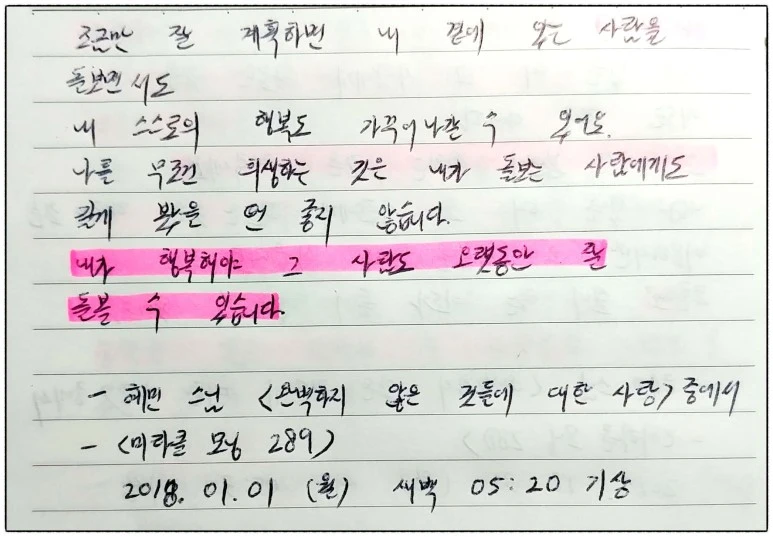 조금만 잘 계획하면 내 곁에 있는 사람을
돌보면서도
내 스스로의 행복도 가꾸어나갈 수 있어요.
나를 무조건 희생하는 것은 내가 돌보는 사람에게도
길게 봤을 땐 좋지 않습니다.
내가 행복해야 그 사람도 오랫동안 잘
돌볼 수 있습니다.
- 혜민 스님 <완벽하지 않은 것들에 대한 사랑> 중에서
- <미라클 모닝 289>
2018. 01. 01 (월) 새벽 05:20 기상